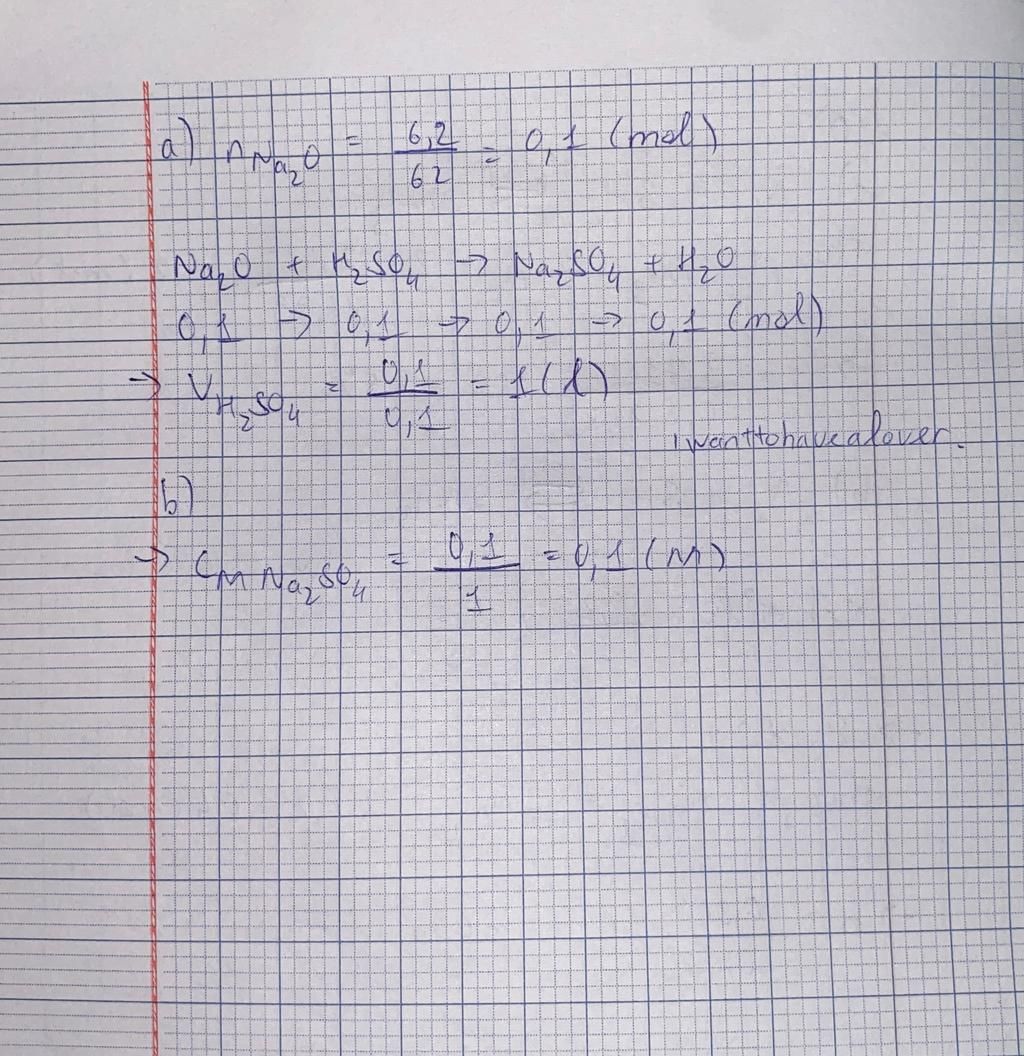 a) nNa₂O = 6,2/62 = 0,1 (mol)
Na₂O + H₂SO₄ → Na₂SO₄ + H₂O
0,1 → 0,1 → 0,1 → 0,1 (mol)
→ VH₂SO₄ = 0,1/0,1 = 1 (l)
iwanttohavealover.
b)
→ CM Na₂SO₄ = 0,1/1 = 0,1 (M)